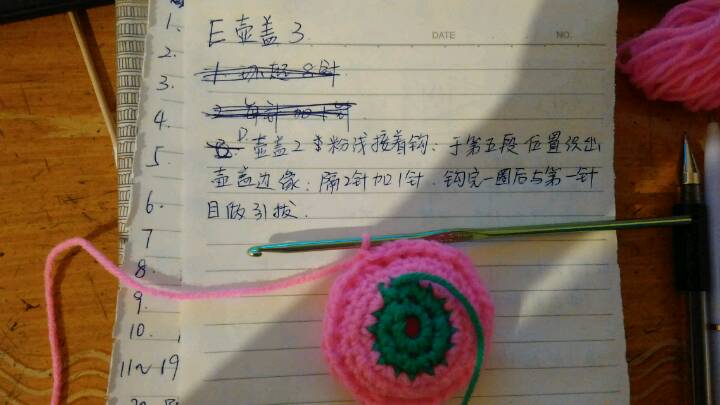 1.
2.
3.
4.
5
6.
7
8.
9.
10.
11~19
E 壶盖 3
DATE NO.
1 环起 8针
2 每针加1针
D. 壶盖2 拿粉线接着钩: 于第五段位置织出
壶盖边缘: 隔2针加1针. 钩完一圈后与第一针
目做引拔.